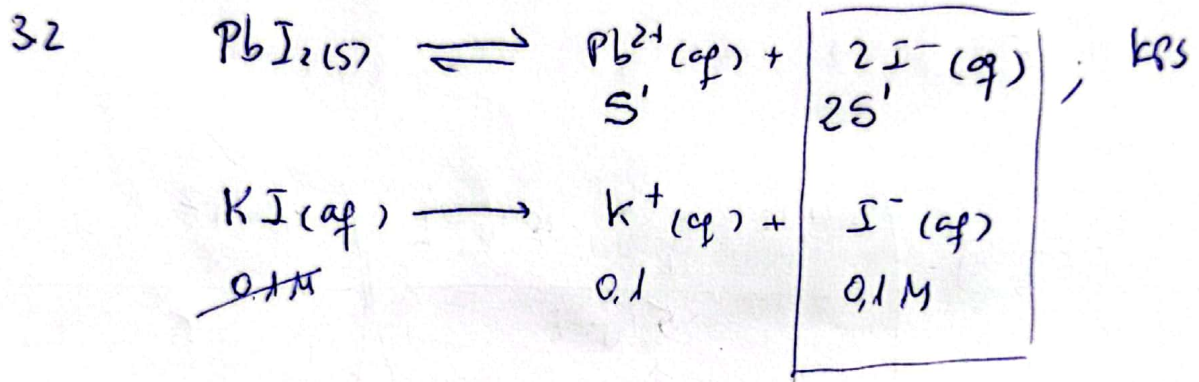 3.2 PbI₂(s) ⇌ Pb²⁺(aq) + 2I⁻(aq) ; kps
S' 2S'
KI(aq) ⟶ K⁺(aq) + I⁻(aq)
0,1M 0,1 0,1M